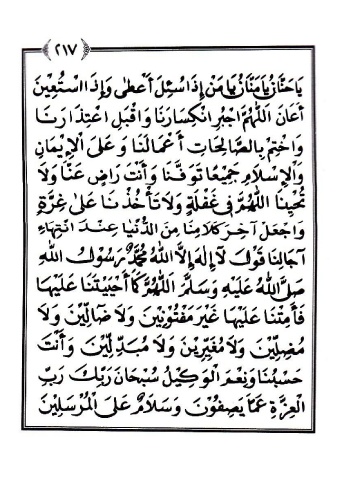 ٢١٧
يَاحَنَّانُ يَا مَنَّانُ يَا مَن إِذَا سُئِلَ أَعْطٰى وَإِذَا اسْتُعِينَ
أَعَانَ اللَّهُمَّ اجْبُرِ انْكِسَارَنَا وَاقْبَلِ اعْتِذَارَنَا
وَاخْتِمْ بِالصَّالِحَاتِ أَعْمَالَنَا وَعَلَى الْإِيْمَانِ
وَالْإِسْلَامِ جَمِيْعًا تَوَفَّنَا وَأَنْتَ رَاضٍ عَنَّا وَلَا
تُحْيِنَا اللَّهُمَّ فِى غَفْلَةٍ وَلَا تَأْخُذْنَا عَلَى غِرَّةٍ
وَاجْعَلْ آخِرَ كَلَامِنَا مِنَ الدُّنْيَا عِنْدَ انْتِهَاءِ
آجَالِنَا قَوْلَ لَآ إِلٰهَ إِلَّا اللّٰهُ مُحَمَّدٌ رَسُوْلُ اللّٰهِ
صَلَّى اللّٰهُ عَلَيْهِ وَسَلَّمَ اللَّهُمَّ كَمَا أَحْيَيْتَنَا عَلَيْهَا
فَأَمِتْنَا عَلَيْهَا غَيْرَ مَفْتُوْنِيْنَ وَلَا ضَالِّيْنَ وَلَا
مُضِلِّيْنَ وَلَا مُغَيِّرِيْنَ وَلَا مُبَدِّلِيْنَ وَأَنْتَ
حَسْبُنَا وَنِعْمَ الْوَكِيْلُ سُبْحَانَ رَبِّكَ رَبِّ
الْعِزَّةِ عَمَّا يَصِفُوْنَ وَسَلَامٌ عَلَى الْمُرْسَلِيْنَ